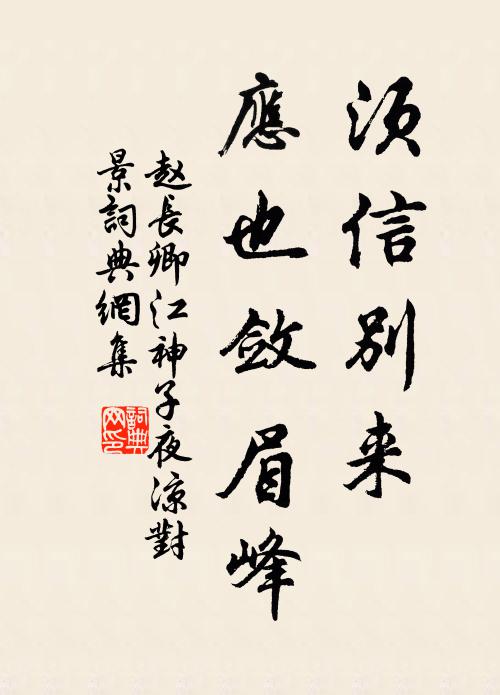 须信别来
應也斂眉峰
赵長卿江神子夜涼對
景詞典網集
詞典网印